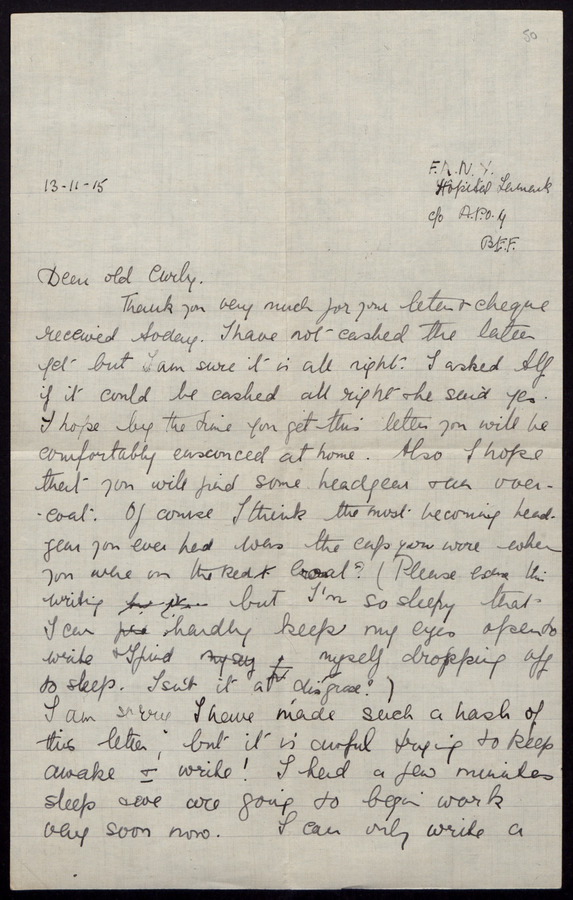 50
F.A.N.Y.
13-11-15
Hôpital Lamark
c/o A.P.O. 4
B.E.F.
Dear old Curly.
Thank you very much for your letter & cheque
received today. I have not cashed the latter
yet but I am sure it is all right. I asked Alf
if it could be cashed all right & he said yes.
I hope by the time you get this letter you will be
comfortably ensconced at home. Also I hope
that you will find some headgear & an over-
-coat. Of course I think the most becoming head-
gear you ever had was the cap you wore when
you were on the Red + boat? (Please this
writing but I'm so sleepy that
I can hardly keep my eyes open to
write & I find myself dropping off
to sleep. Isn't it a disgrace?)
I am sorry I have made such a hash of
this letter; but it is awful trying to keep
awake & write! I had a few minutes
sleep & we are going to begin work
very soon now. I can only write a